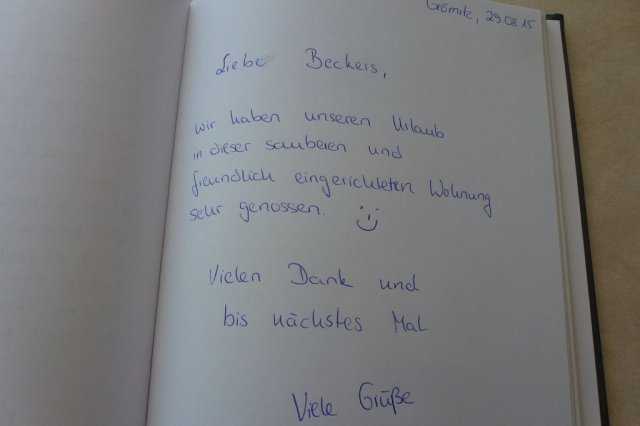 Grömitz, 29.08.15
Liebe Beckers,
wir haben unseren Urlaub
in dieser sauberen und
freundlich eingerichteten Wohnung
sehr genossen.
Vielen Dank und
bis nächstes Mal
Viele Grüße